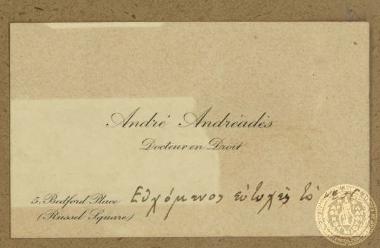 André Andréadès
Docteur en Droit
5, Bedford Place Εὐχόμενος εὐτυχὲς τὸ
(Russel Square)